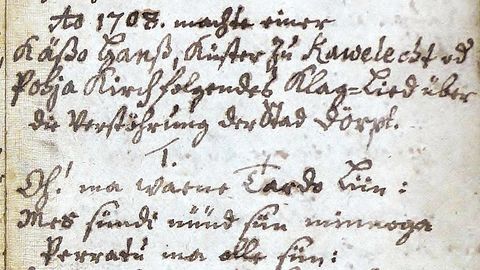 Ao 1708. machte einer
Käßo Hanß, Küster zu Kawelecht od
Pohja Kirch folgendes Klag=Lied über
die Verstöhrung der Stad Dörpt.
1.
Oh! ma waene Tardo Liin:
Mes sündi nüüd siin minnoga
Perratu ma olle siin: